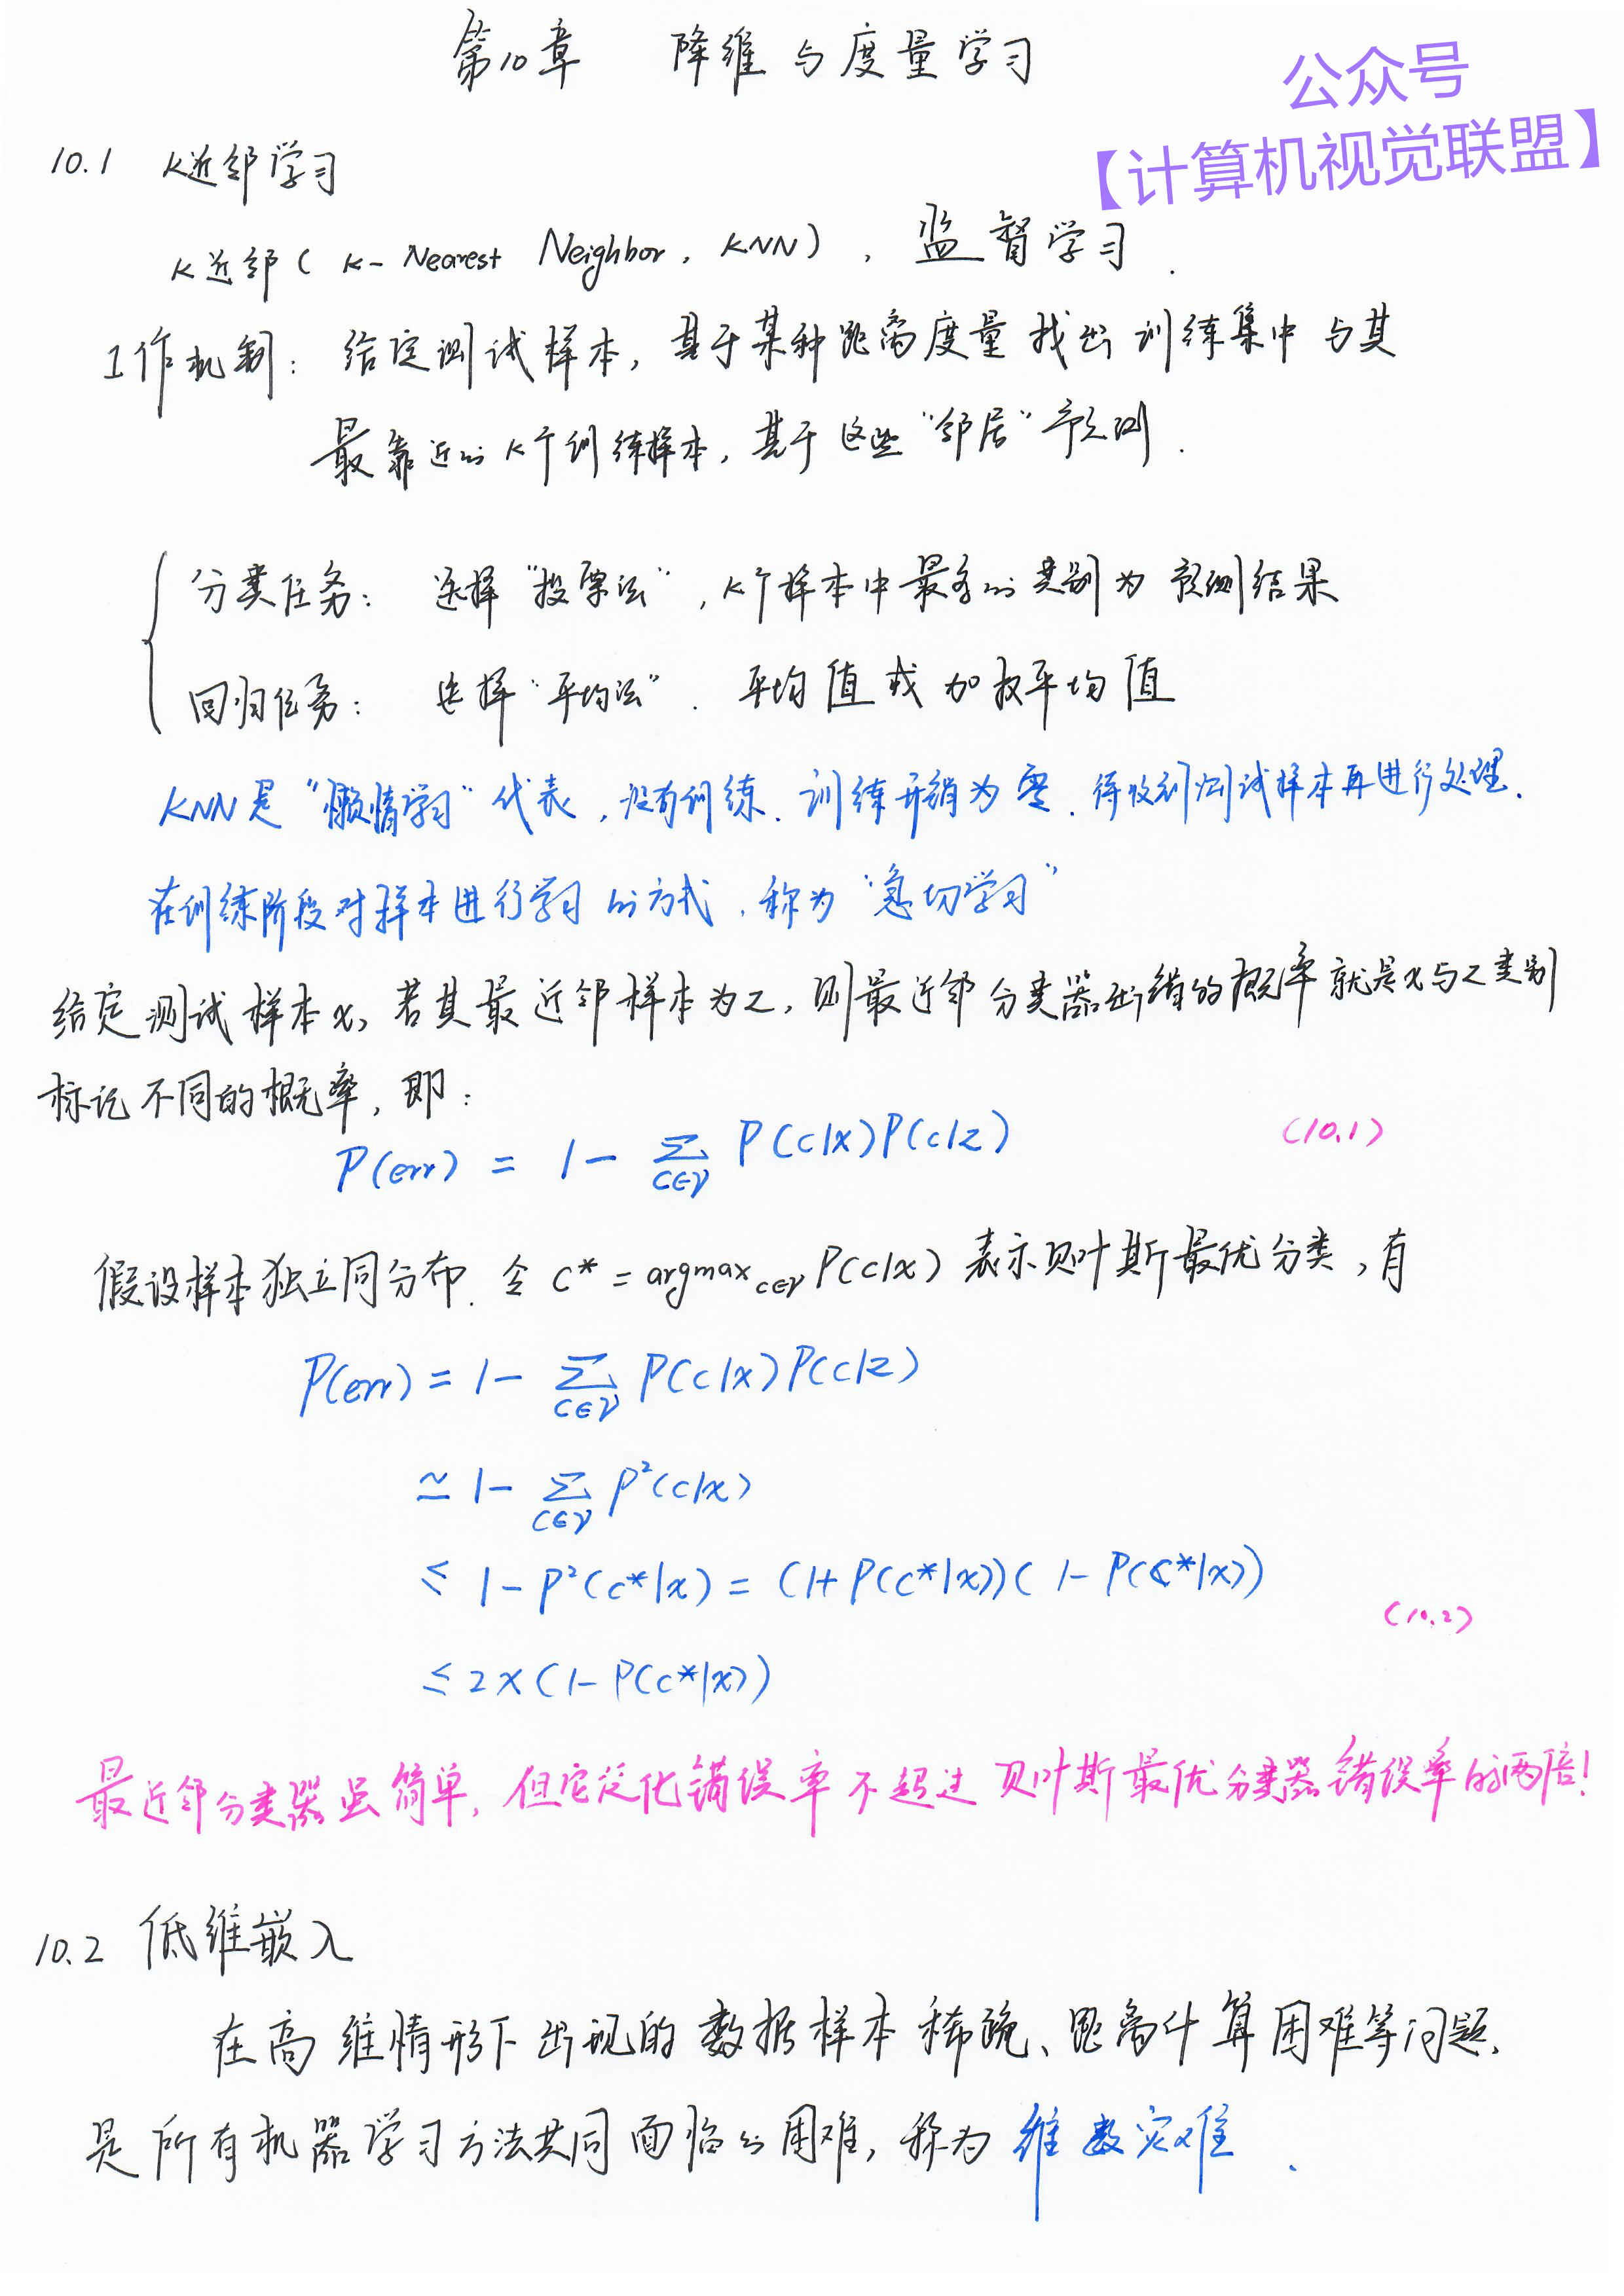 第10章 降维与度量学习
公众号
【计算机视觉联盟】
10.1 K近邻学习
K近邻( K-Nearest Neighbor, KNN), 监督学习.
工作机制: 给定测试样本, 基于某种距离度量找出训练集中与其
最靠近的K个训练样本, 基于这些"邻居"预测.
分类任务: 选择"投票法", K个样本中最多的类别为预测结果
回归任务: 选择"平均法". 平均值或加权平均值
KNN是"懒惰学习"代表, 没有训练. 训练开销为零. 待收到测试样本再进行处理.
在训练阶段对样本进行学习的方式, 称为"急切学习"
给定测试样本x, 若其最近邻样本为z, 则最近邻分类器出错的概率就是x与z类别
标记不同的概率, 即:
P(err) = 1 - ∑_{c∈γ} P(c|x)P(c|z) (10.1)
假设样本独立同分布. 令 c* = argmax_{c∈γ} P(c|x) 表示贝叶斯最优分类, 有
P(err) = 1 - ∑_{c∈γ} P(c|x)P(c|z)
≃ 1 - ∑_{c∈γ} P²(c|x)
≤ 1 - P²(c*|x) = (1+P(c*|x))(1-P(c*|x))
(10.2)
≤ 2×(1-P(c*|x))
最近邻分类器虽简单, 但它泛化错误率不超过贝叶斯最优分类器错误率的两倍!
10.2 低维嵌入
在高维情形下出现的数据样本稀疏、距离计算困难等问题,
是所有机器学习方法共同面临的困难, 称为维数灾难.